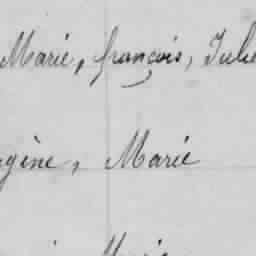 Marie, françois, Julie
gène, Marie